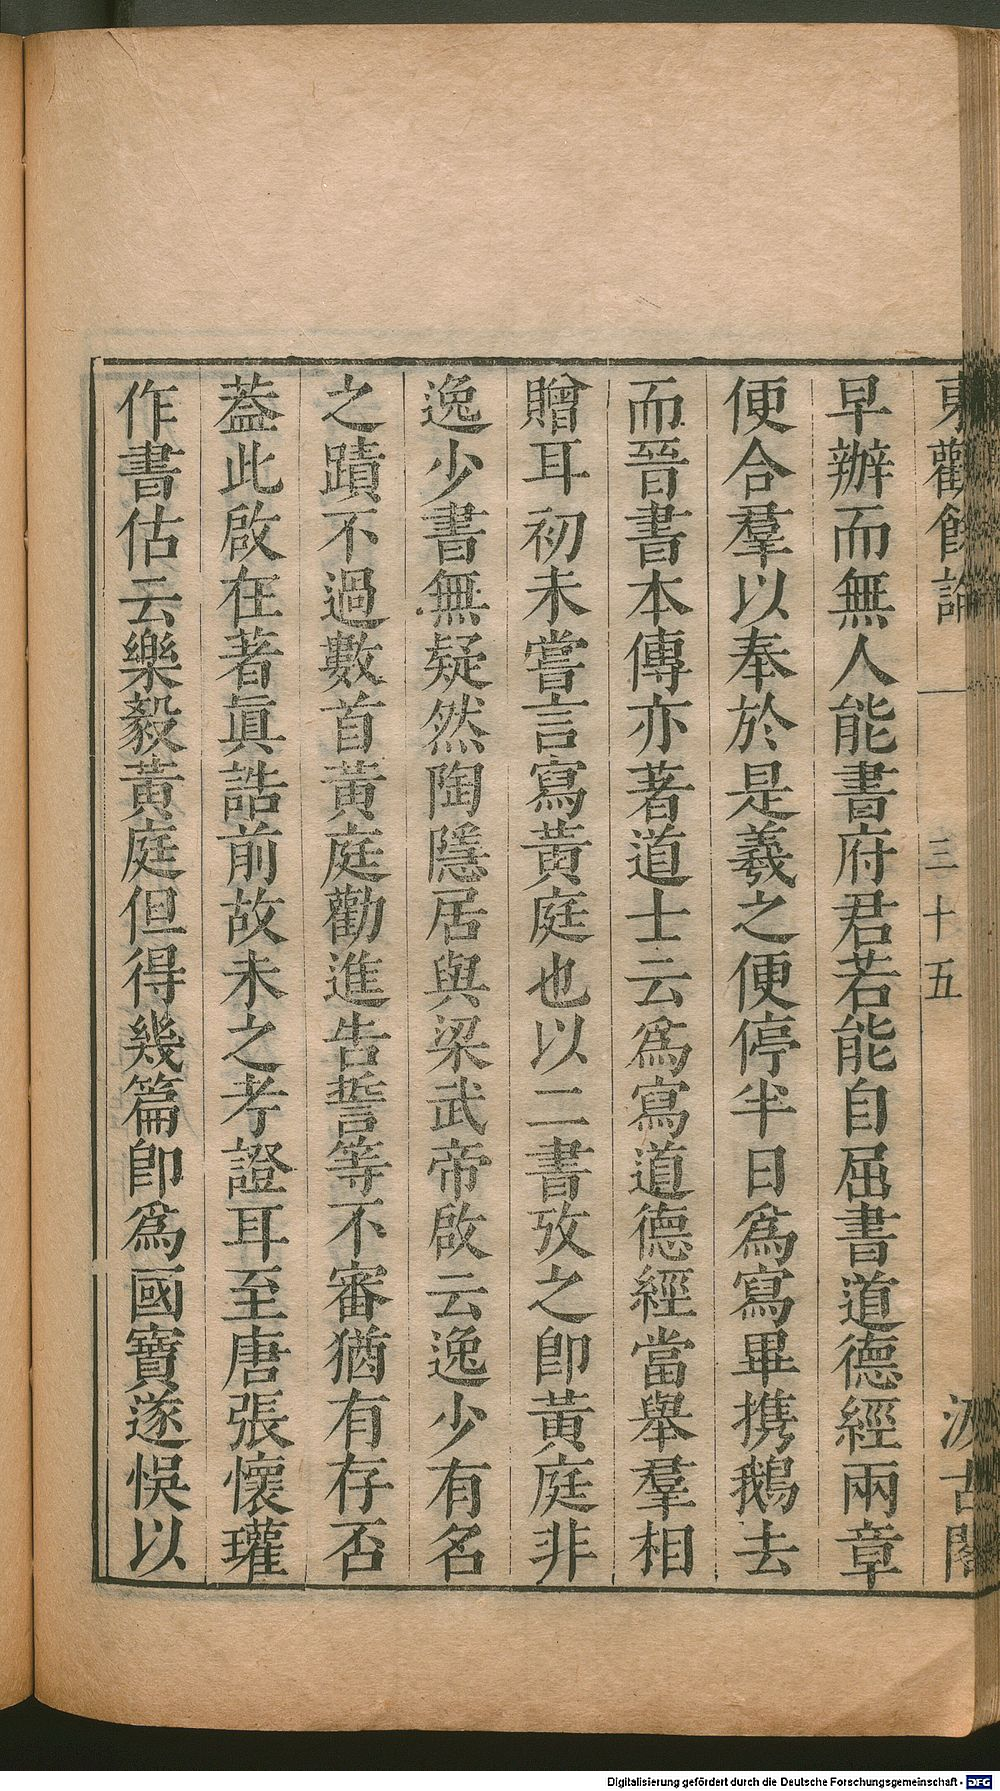 東觀餘論 一 三十五 汲古閣
早辦而無人能書府君若能自屈書道德經兩章
便合羣以奉於是羲之便停半日爲寫畢携鵝去
而晉書本傳亦著道士云爲寫道德經當舉羣相
贈耳初未嘗言寫黃庭也以二書攷之卽黃庭非
逸少書無疑然陶隱居與梁武帝啟云逸少有名
之蹟不過數首黃庭勸進告誓等不審猶有存否
葢此啟在著眞誥前故未之考證耳至唐張懷瓘
作書估云樂毅黃庭但得幾篇卽爲國寶遂悞以
Digitalisierung gefördert durch die Deutsche Forschungsgemeinschaft - DFG